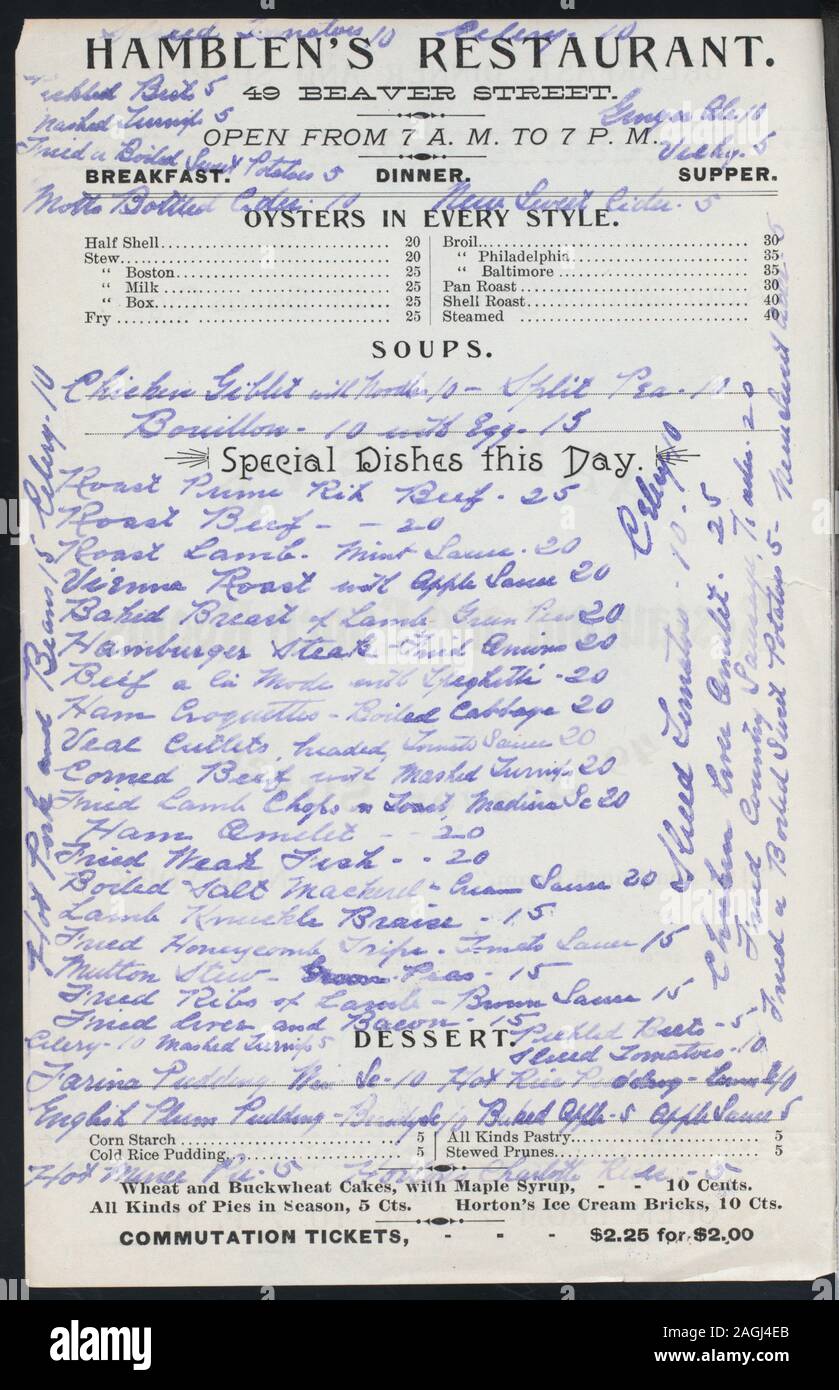 Sliced Tomatoes 10 Celery - 10
HAMBLEN'S RESTAURANT.
Pickled Beets 5
49 BEAVER STREET.
Mashed Turnips 5
Ginger Ale 10
OPEN FROM 7 A. M. TO 7 P. M.
Fried or Boiled Sweet Potatoes 5
Vichy. 5
BREAKFAST. DINNER. SUPPER.
Motts Bottled Cider - 10 New Sweet Cider - 5
OYSTERS IN EVERY STYLE.
Half Shell 20
Stew 20
" Boston 25
" Milk 25
" Box 25
Fry 25
Broil 30
" Philadelphia 35
" Baltimore 35
Pan Roast 30
Shell Roast 40
Steamed 40
SOUPS.
Chicken Giblet with Noodles 10 - Split Pea - 10
Bouillon - 10 with Egg - 15
Special Dishes this Day.
Roast Prime Rib Beef - 25
Roast Beef - - 20
Roast Lamb - Mint Sauce - 20
Vienna Roast with Apple Sauce 20
Baked Breast of Lamb - Green Peas 20
Hamburger Steak - Fried Onions 20
Beef a la Mode with Speghetti - 20
Ham Croquettes - Boiled Cabbage 20
Veal Cutlets breaded, Tomato Sauce 20
Corned Beef with Mashed Turnips 20
Fried Lamb Chops on Toast, Madeira Sc 20
Ham Omelet - - 20
Fried Weak Fish - - 20
Boiled Salt Mackerel - Cream Sauce 20
Lamb Knuckle Braise - 15
Fried Honeycomb Tripe - Tomato Sauce 15
Mutton Stew - Peas - 15
Fried Ribs of Lamb - Brown Sauce 15
Fried Liver and Bacon - 15
Hot Pork and Beans 15 Celery - 10
Celery 10
Sliced Tomatoes - 10
Chicken Liver Omelet - 25
Fried Country Sausage, 20
Fried or Boiled Sweet Potatoes 5 - New Sweet Cider 5
Pickled Beets - 5
Celery - 10 Mashed Turnips 5
DESSERT.
Sliced Tomatoes - 10
Farina Pudding Wine Sc - 10 Hot Rice Pudding - 10
English Plum Pudding - Brandy Sc 10 Baked Apple - 5 Apple Sauce 5
Corn Starch 5
Cold Rice Pudding 5
All Kinds Pastry 5
Stewed Prunes 5
Hot Mince Pie - 5 Charlotte Russe - 5
Wheat and Buckwheat Cakes, with Maple Syrup, - - 10 Cents.
All Kinds of Pies in Season, 5 Cts. Horton's Ice Cream Bricks, 10 Cts.
COMMUTATION TICKETS, - - - $2.25 for $2.00
alamy
Image ID: 2AGJ4EB
www.alamy.com